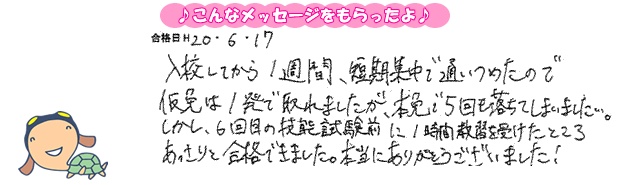 ♪こんなメッセージをもらったよ♪
合格日H20・6・17
入校してから1週間、短期集中で通いつめたので
仮免は1発で取れましたが、本免で5回も落ちてしまいました…。
しかし、6回目の技能試験前に1時間教習を受けたところ
あっさりと合格できました。本当にありがとうございました！